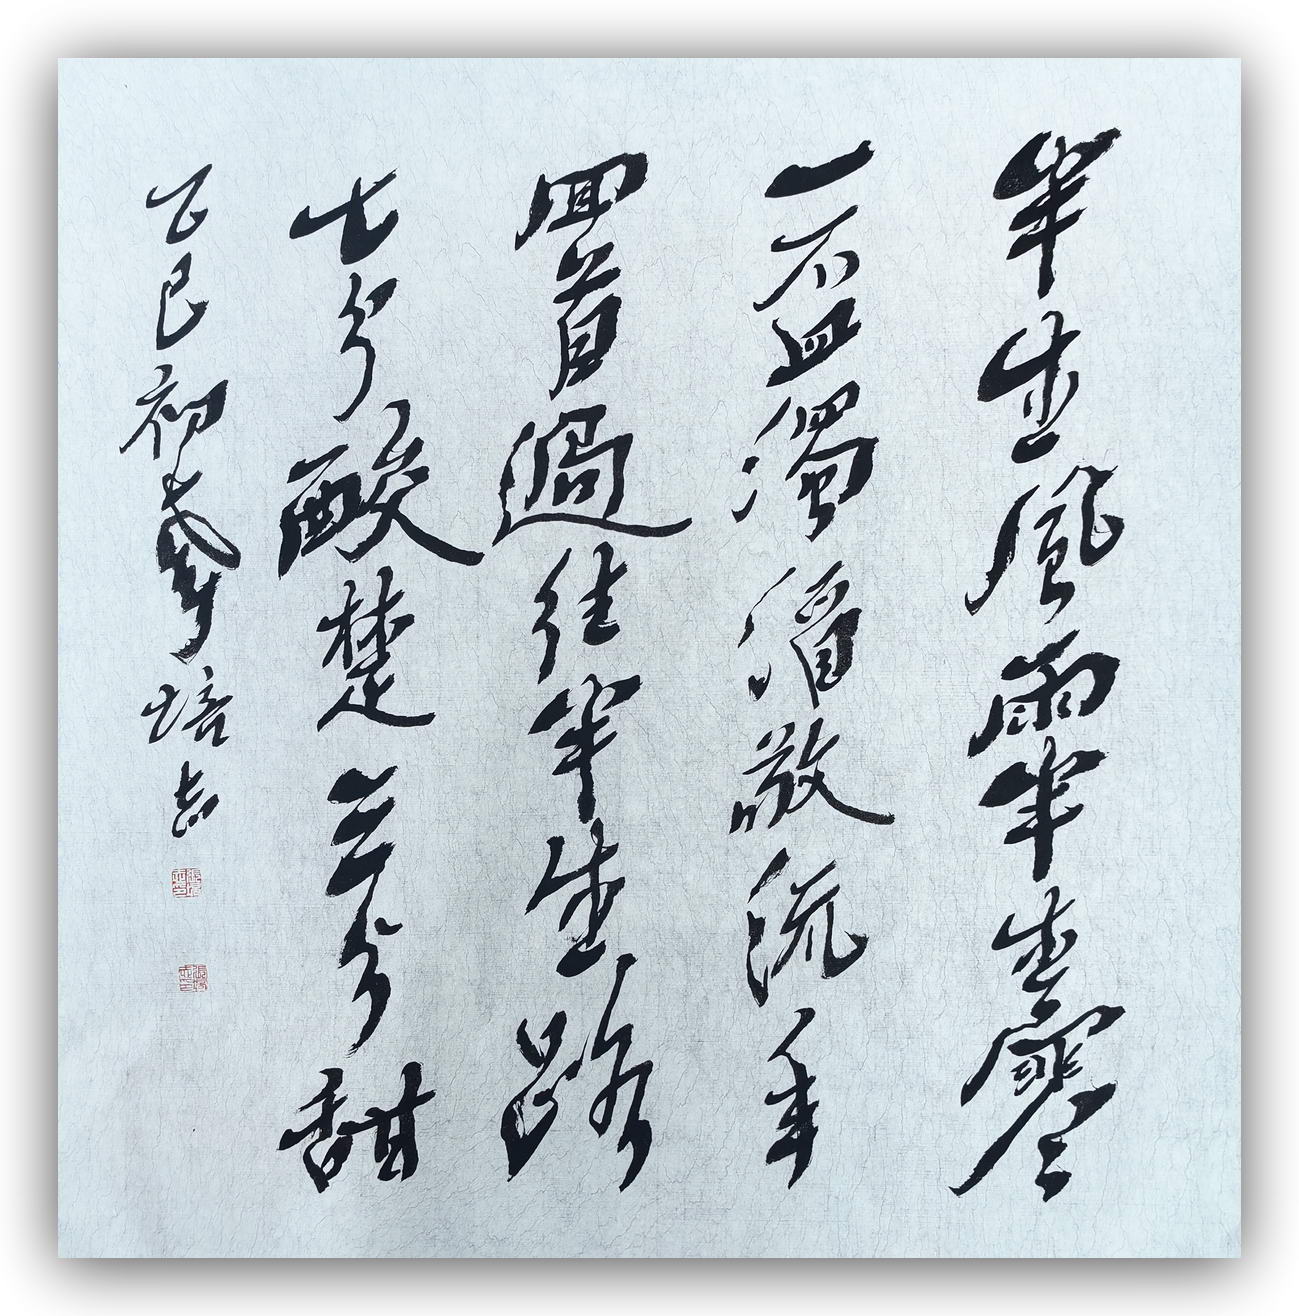 半生風雨半生寒
一盃濁酒敬流年
回首過往半生路
七分酸楚三分甜
乙巳初春培志